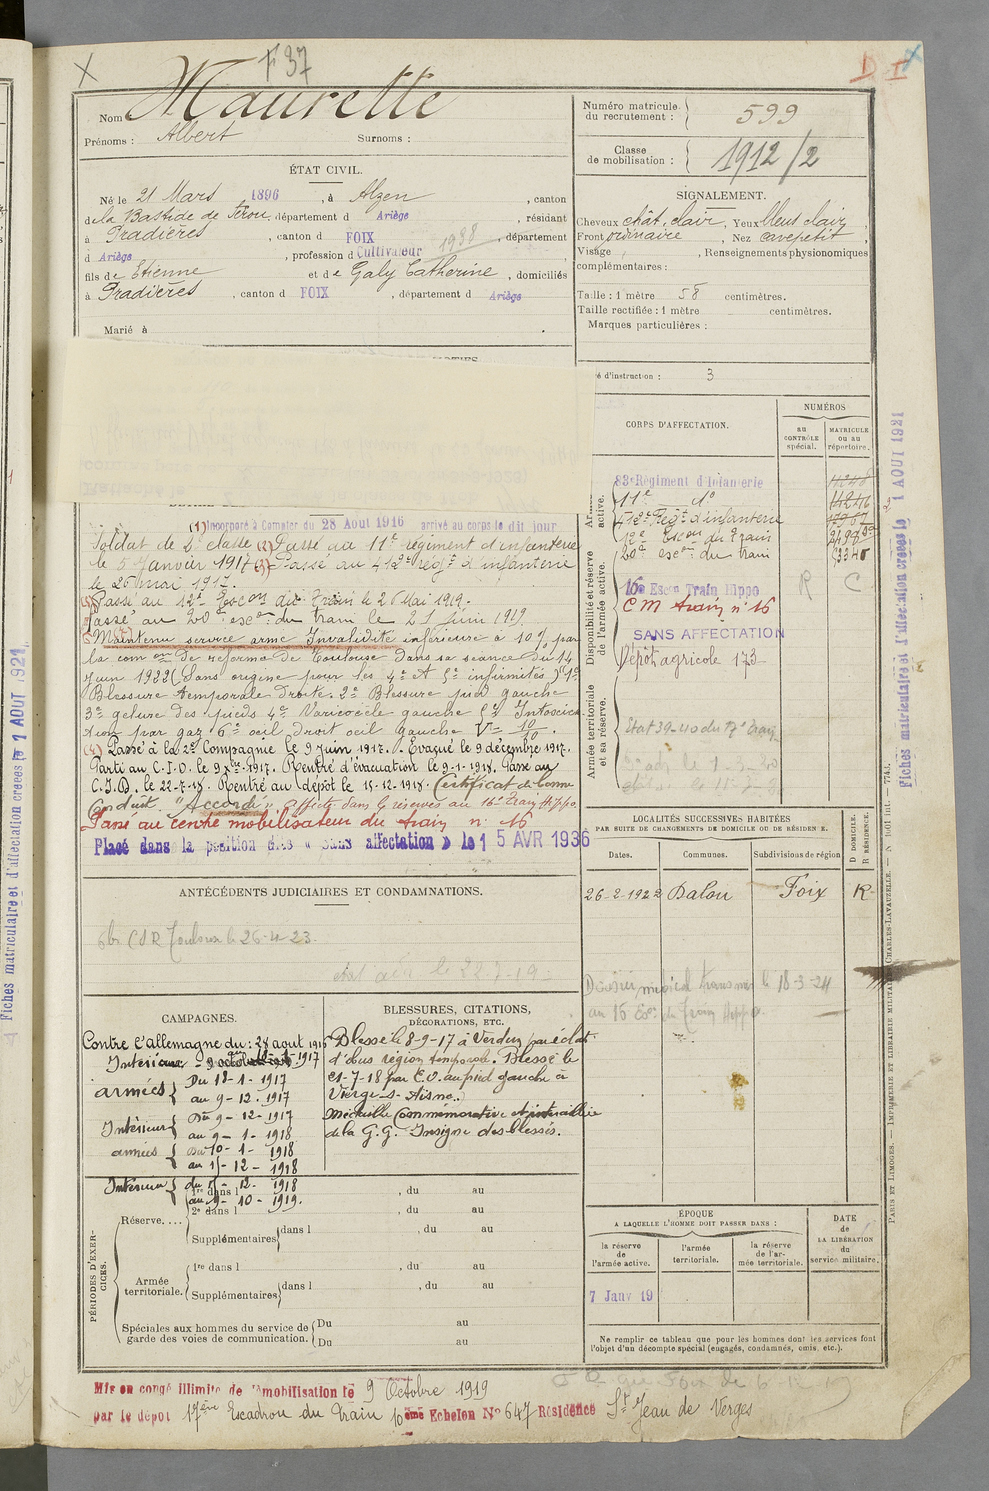 F 37
D I
Nom Maurette
Prénoms : Albert Surnoms :
Numéro matricule du recrutement : 599
Classe de mobilisation : 1912/2
ÉTAT CIVIL.
Né le 21 Mars 1896, à Alzen, canton
de la Bastide de Sérou, département d Ariège, résidant
à Pradières, canton d FOIX, département
1938
d Ariège, profession d Cultivateur
fils de Etienne et de Galy Catherine, domiciliés
à Pradières, canton d FOIX, département d Ariège
Marié à
SIGNALEMENT.
Cheveux chât. clair, Yeux bleus clair,
Front ordinaire, Nez cave petit,
Visage , Renseignements physionomiques
complémentaires :
Taille : 1 mètre 58 centimètres.
Taille rectifiée : 1 mètre centimètres.
Marques particulières :
é d'instruction : 3
(1) Incorporé à Compter du 28 Aout 1916 arrivé au corps le dit jour
Soldat de 2e classe (2) Passé au 11e régiment d'infanterie
le 5 Janvier 1917 (3) Passé au 412e régt d'infanterie
le 26 mai 1917.
Passé au 12e Escon du Train le 26 Mai 1919.
Passé au 20e escon du train le 21 Juin 1919.
Maintenu service armé Invalidité inférieure à 10 % par
la com on de réforme de Toulouse dans sa séance du 14
Juin 1922 (Sans origine pour les 4e et 5e infirmités) 1e
Blessure temporale Droite. 2e Blessure pied gauche
3e gelure des pieds 4e Varicocèle gauche 5e Intoxica
tion par gaz 6e oeil droit oeil gauche V= 10/10.
(4) Passé à la 2e Compagnie le 9 Juin 1917. Evacué le 9 décembre 1917.
Parti au C.I.D. le 9 Xbre 1917. Rentré d'évacuation le 9-1-1918. Passé au
C.I.D. le 22-7-18. Rentré au dépôt le 15-12-1918. Certificat de bonne
Conduite "Accordé" Affecté dans la réserve au 16e Train Hippo
Passé au centre mobilisateur du train n° 16
Placé dans la position dite « sans affectation » le 15 AVR 1936
CORPS D'AFFECTATION.
NUMÉROS
au CONTRÔLE spécial.
MATRICULE ou au répertoire.
active.
83e Régiment d'Infanterie
11e do
412e Régt d'infanterie
12e Escon du Train
20e escon du train 3340
Disponibilité et réserve de l'armée active.
16e Escon Train Hippo R C
CM train n° 16
SANS AFFECTATION
Dépôt agricole 173
Armée territoriale et sa réserve.
Etat 39-40 du 17e Train
LOCALITÉS SUCCESSIVES HABITÉES
PAR SUITE DE CHANGEMENTS DE DOMICILE OU DE RÉSIDENCE.
D DOMICILE. R RÉSIDENCE.
Dates. Communes. Subdivisions de région
26-2-1922 Dalou Foix R
Dossier médical transmis le 18-3-24
au 16 Esc. du Train Hippo.
ANTÉCÉDENTS JUDICIAIRES ET CONDAMNATIONS.
CSR Toulouse le 26-4-23.
CAMPAGNES.
Contre l'Allemagne du : 28 aout 1916
Intérieur 1917
armées { Du 18-1-1917
au 9-12-1917
Intérieur { Du 9-12-1917
au 9-1-1918
armées { Du 10-1-1918
au 15-12-1918
Intérieur { du 15-12-1918
au 9-10-1919.
BLESSURES, CITATIONS,
DÉCORATIONS, ETC.
Blessé le 8-9-17 à Verdun par éclat
d'obus région temporale. Blessé le
21-7-18 par E.O. au pied gauche à
Vierge-s-Aisne.
Médaille Commémorative et interalliée
de la G.G. Insigne des blessés.
PÉRIODES D'EXERCICES.
Réserve....
1re dans l , du au
2e dans l , du au
Supplémentaires dans l , du au
Armée territoriale.
1re dans l , du au
Supplémentaires dans l , du au
Spéciales aux hommes du service de garde des voies de communication.
Du au
Du au
ÉPOQUE
A LAQUELLE L'HOMME DOIT PASSER DANS :
la réserve de l'armée active.
l'armée territoriale.
la réserve de l'armée territoriale.
DATE de LA LIBÉRATION du service militaire.
7 Janv 19
Ne remplir ce tableau que pour les hommes dont les services font
l'objet d'un décompte spécial (engagés, condamnés, omis, etc.).
Mis en congé illimité de démobilisation le 9 Octobre 1919
par le dépot 17ème Escadron du Train 10ème Echelon N° 647 Résidence St Jean de Verges
Fiches matriculaire et d'affectation créées le 1 AOUT 1921
Fiches matriculaire et d'affectation créées le 1 AOUT 1921
PARIS ET LIMOGES. — IMPRIMERIE ET LIBRAIRIE MILITAIRES CHARLES-LAVAUZELLE.